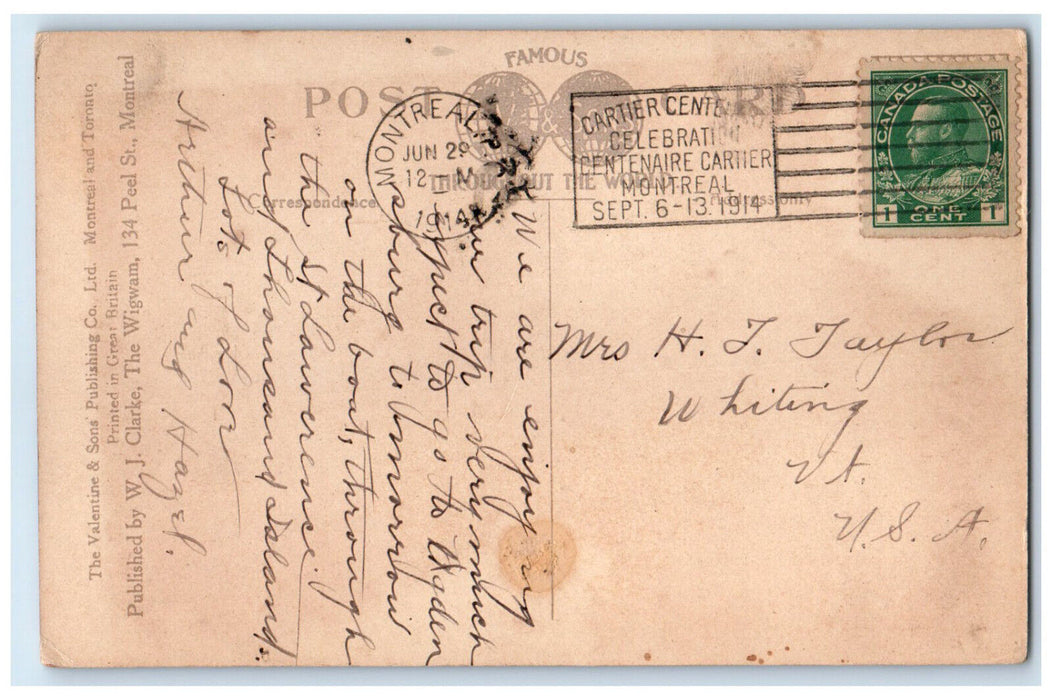 FAMOUS
POST CARD
THROUGHOUT THE WORLD
Correspondence
Address only
MONTREAL, P.
JUN 29
12 - M
1914
CARTIER CENTE
CELEBRATI
CENTENAIRE CARTIER
MONTREAL
SEPT. 6-13. 1914
CANADA POSTAGE
1 ONE CENT 1
We are enjoying
our trip very much
expect to go to Ogden
sburg to tomorrow
on the boat, through
the St Lawerence
and Thousand Island.
Lots of Love
Arther and Hazel.
Mrs H. T. Taylor
Whiting
Vt.
U.S.A.
The Valentine & Sons' Publishing Co., Ltd. Montreal and Toronto,
Printed in Great Britain
Published by W. J. Clarke, The Wigwam, 134 Peel St., Montreal